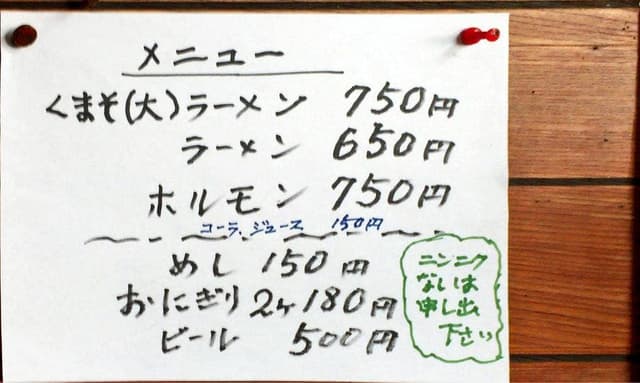 メニュー
くまそ(大)ラーメン 750円
ラーメン 650円
ホルモン 750円
コーラ、ジュース 150円
めし 150円
おにぎり2ヶ180円
ビール 500円
ニンニク
ないは
申し出
下さい